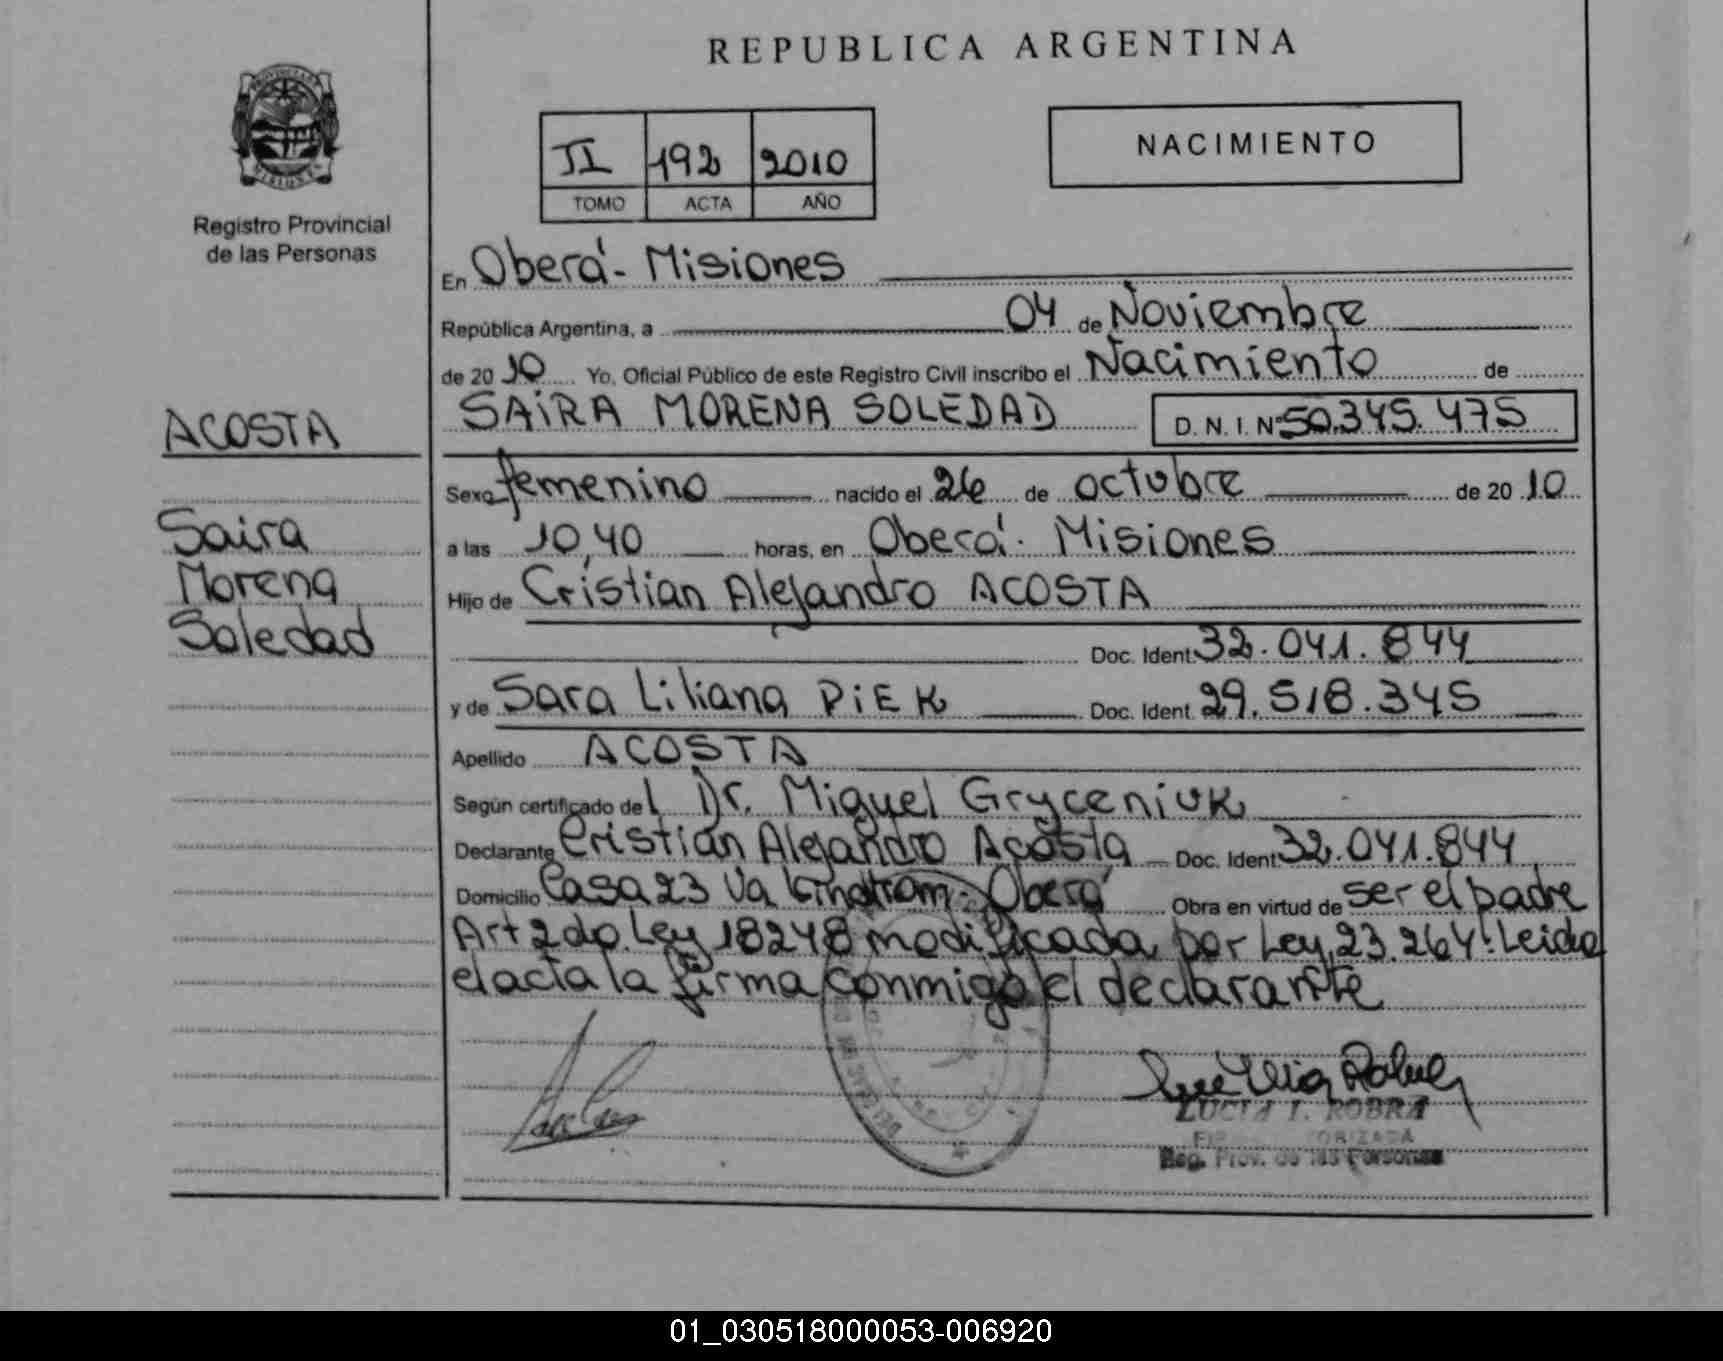 REPUBLICA ARGENTINA
NACIMIENTO
II 192 2010
TOMO ACTA AÑO
Registro Provincial
de las Personas
ACOSTA
Saira
Morena
Soledad
En Oberá - Misiones
República Argentina, a 04 de Noviembre
de 20 10 Yo, Oficial Público de este Registro Civil inscribo el Nacimiento de
SAIRA MORENA SOLEDAD D. N. I. Nº 50.345.475
Sexo femenino nacido el 26 de octubre de 20 10
a las 10,40 horas, en Oberá. Misiones
Hijo de Cristian Alejandro ACOSTA
Doc. Ident. 32.041.844
y de Sara Liliana PiEK Doc. Ident. 29.518.345
Apellido ACOSTA
Según certificado del Dr. Miguel Gryceniuk
Declarante Cristian Alejandro Acosta Doc. Ident. 32.041.844
Domicilio Casa 23 Va Oberá Obra en virtud de ser el padre
Art 2do. Ley 18248 modificada por Ley 23.264! Leida
el acta la firma conmigo el declarante
LUCIA I. ROBRA
Reg. Prov. de las Personas
01_030518000053-006920